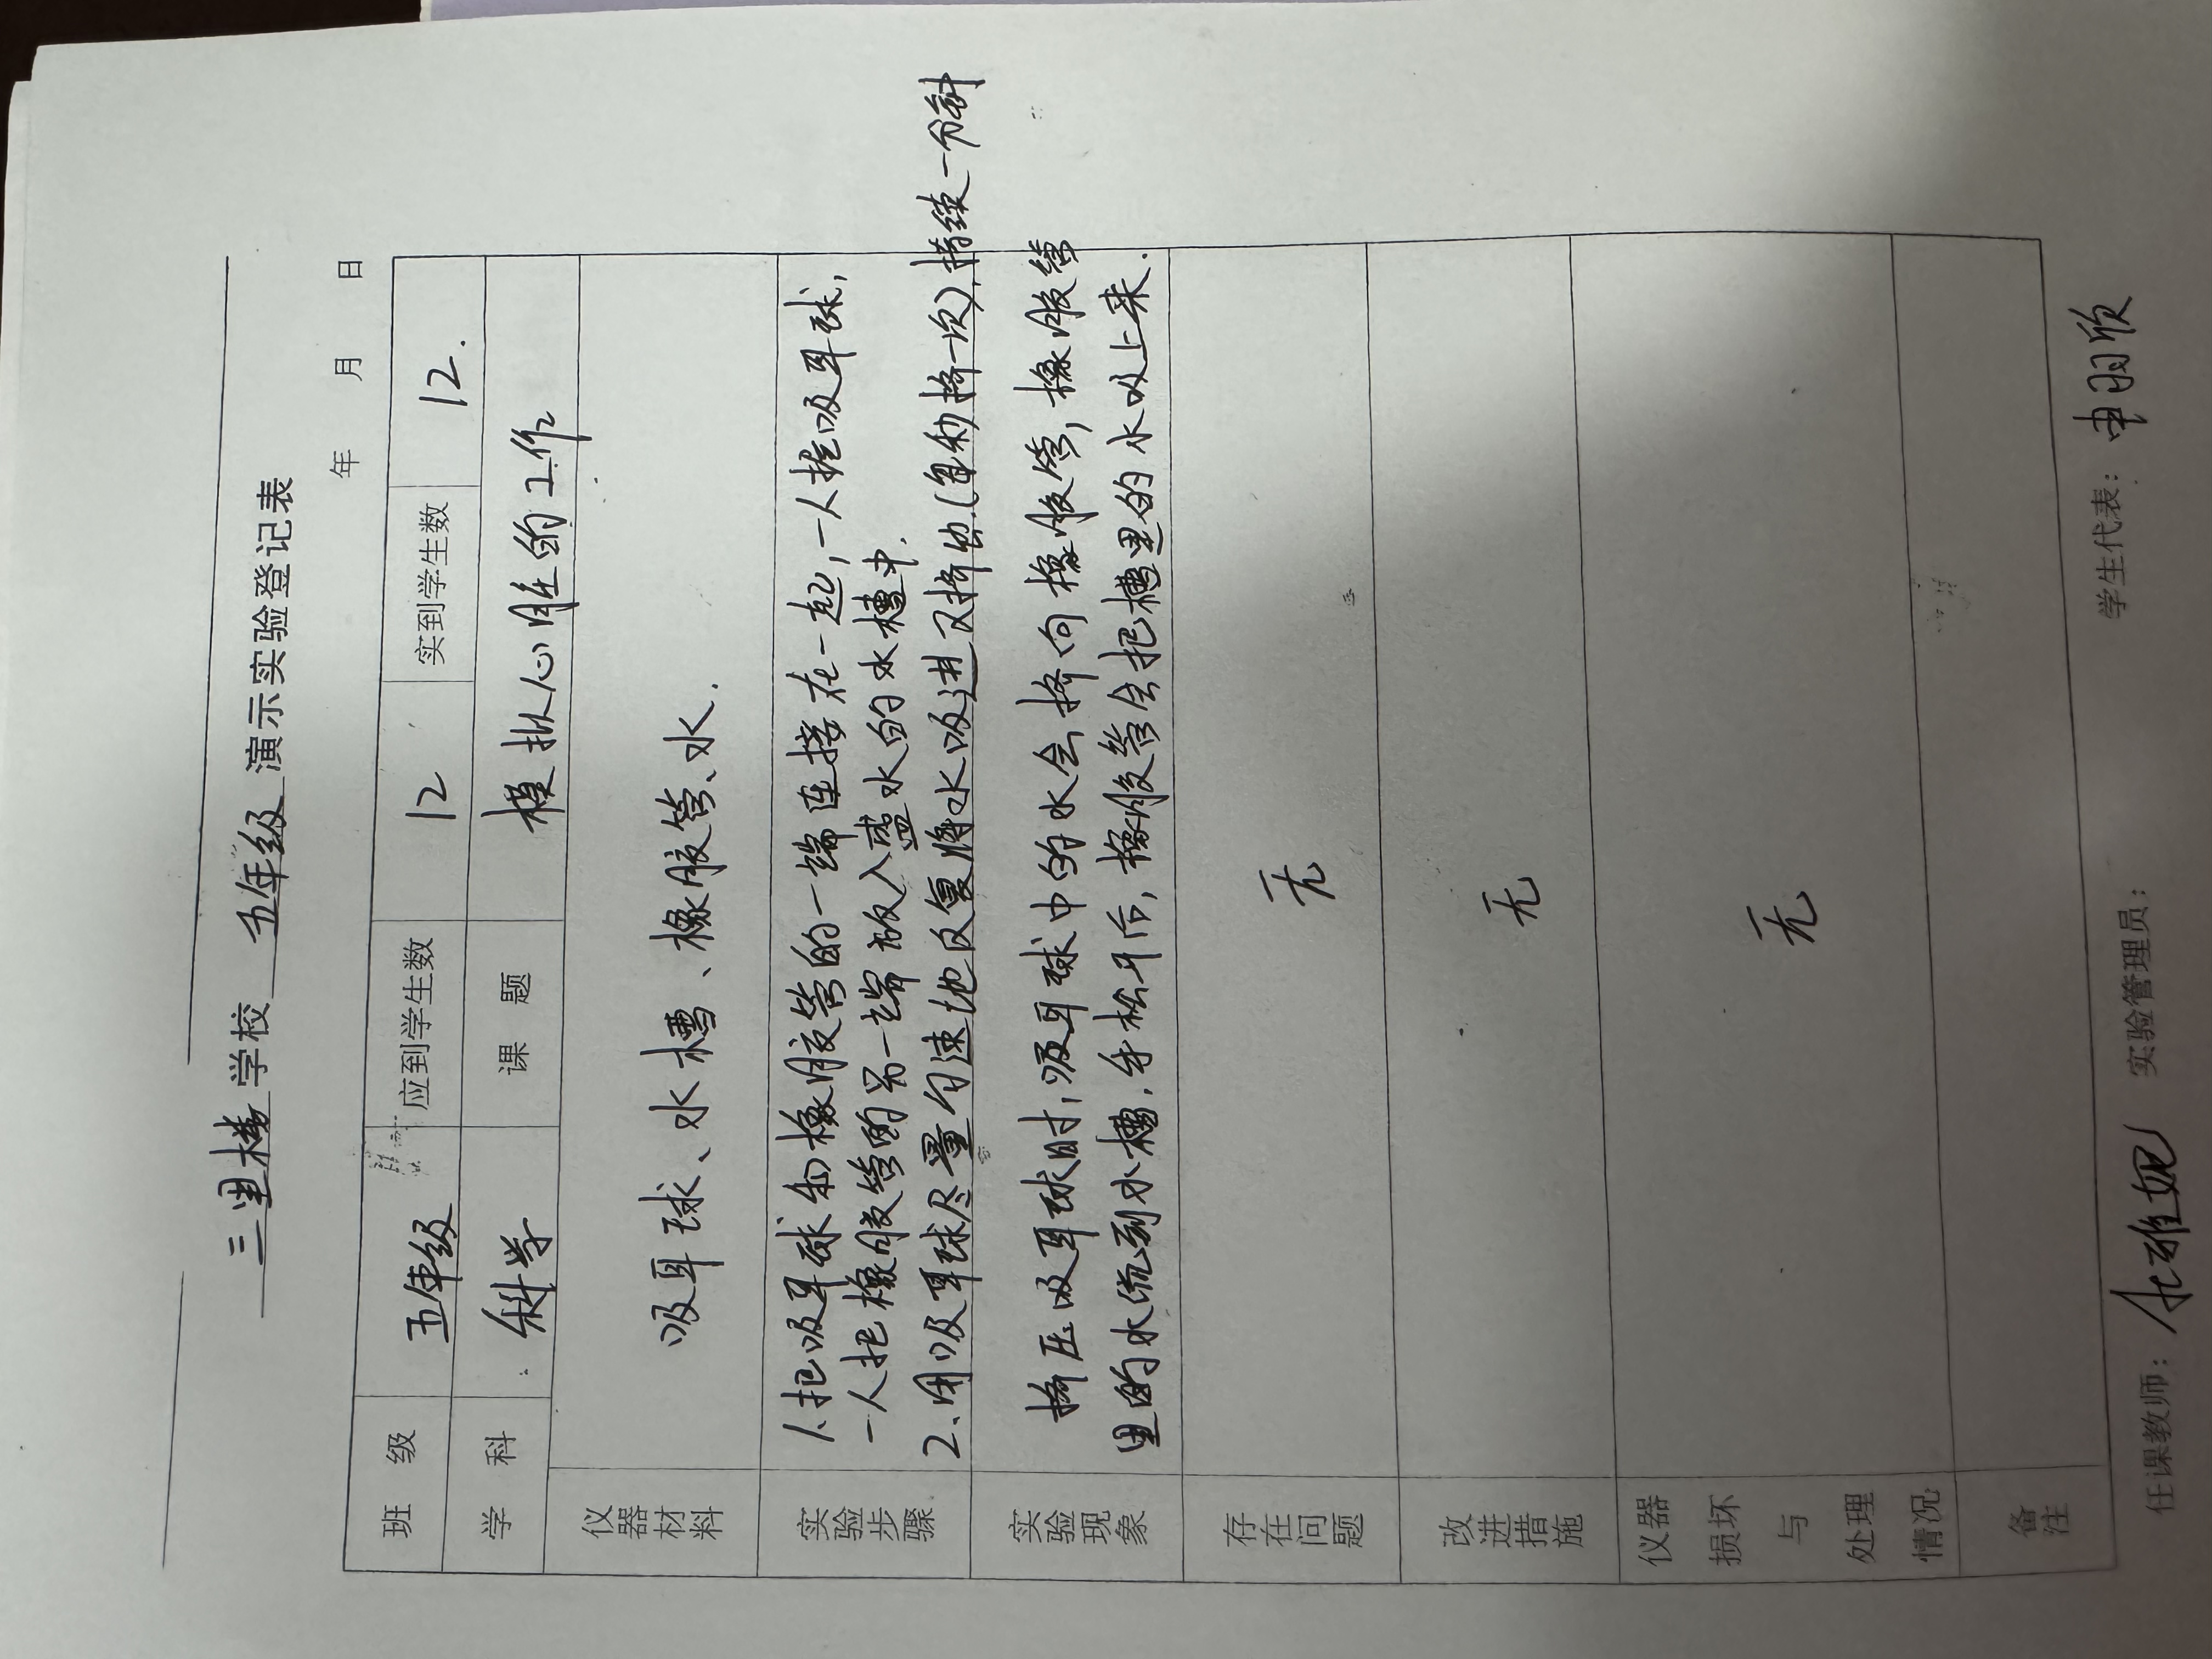 三里楼学校 五年级 演示实验登记表
年 月 日
班级 五年级 应到学生数 12 实到学生数 12.
学科 科学 课题 模拟心脏的工作
仪器材料 吸耳球、水槽、橡胶管、水.
实验步骤
1.把吸耳球和橡胶管的一端连接在一起,一人握吸耳球,
一人把橡胶管的另一端放入盛水的水槽中.
2.用吸耳球尽量匀速地反复将水吸进又挤出.(每秒挤一次).持续一分钟
实验现象
挤压吸耳球时,吸耳球中的水会挤向橡胶管,橡胶管
里的水流到水槽.手松开后,橡胶管会把槽里的水吸上来.
存在问题 无
改进措施 无
仪器损坏与处理情况 无
备注
任课教师: 雅妮 实验管理员: 学生代表: 申羽欣